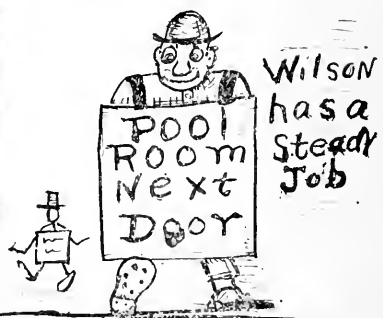 POOL
ROOM
Next
Door
Wilson
has a
Steady
Job